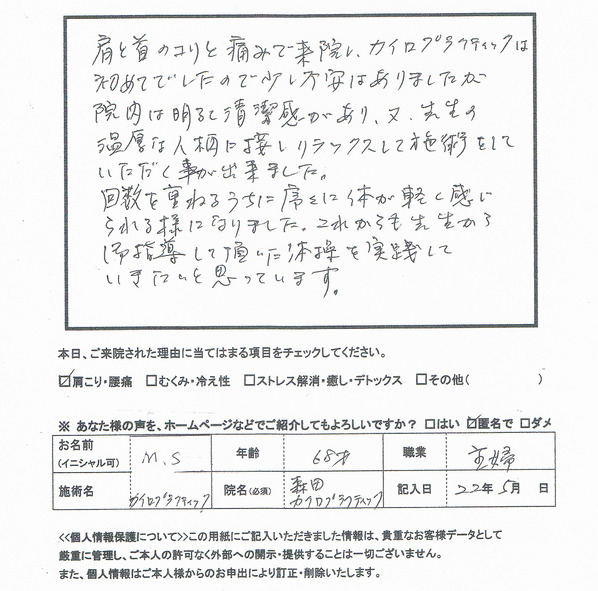 肩と首のコリと痛みで来院し、カイロプラクティックは
初めてでしたので少し不安はありましたが
院内は明るく清潔感があり、又、先生の
温厚な人柄に接しリラックスして施術をして
いただく事が出来ました。
回数を重ねるうちに序々に体が軽く感じ
られる様になりました。これからも先生から
御指導して頂いた体操を実践して
いきたいと思っています。
本日、ご来院された理由に当てはまる項目をチェックしてください。
☑肩こり・腰痛 □むくみ・冷え性 □ストレス解消・癒し・デトックス □その他( )
※ あなた様の声を、ホームページなどでご紹介してもよろしいですか? □はい ☑匿名で □ダメ
お名前 (イニシャル可) M.S 年齢 68才 職業 主婦
施術名 カイロプラクティック 院名(必須) 森田カイロプラクティック 記入日 22年 5月 日
<<個人情報保護について>>この用紙にご記入いただきました情報は、貴重なお客様データとして
厳重に管理し、ご本人の許可なく外部への開示・提供することは一切ございません。
また、個人情報はご本人様からのお申出により訂正・削除いたします。